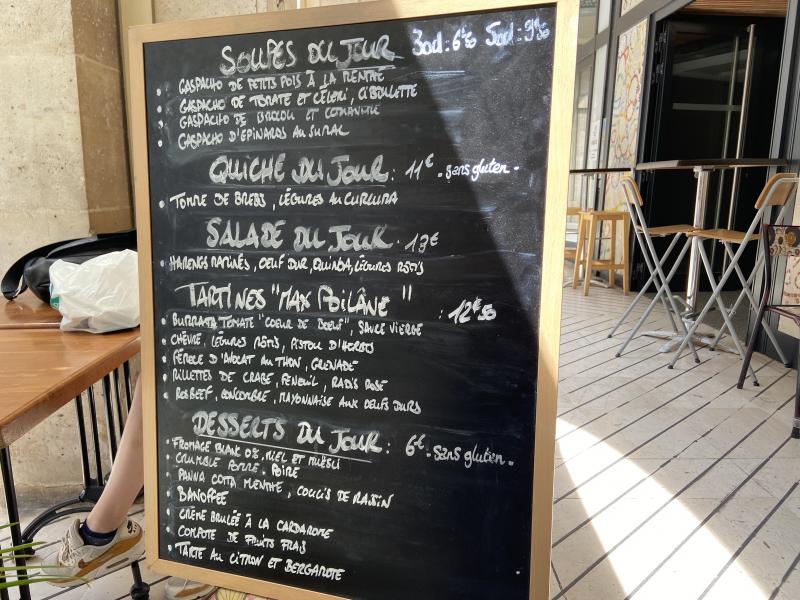 SOUPES DU JOUR 30cl : 6€50 50cl : 9€50
• GASPACHO DE PETITS POIS À LA MENTHE
• GASPACHO DE TOMATE ET CÉLERI, CIBOULETTE
• GASPACHO DE BROCOLI ET CORIANDRE
• GASPACHO D'EPINARDS AU SUMAC
QUICHE DU JOUR : 11€ - sans gluten -
• TOMME DE BREBIS, LÉGUMES AU CURCUMA
SALADE DU JOUR . 13€
• HARENGS MARINÉS, OEUF DUR, QUINOA, LÉGUMES RÔTIS
TARTINES "MAX POILÂNE" : 12€50
• BURRATA TOMATE "COEUR DE BOEUF", SAUCE VIERGE
• CHÈVRE, LÉGUMES RÔTIS, PISTOU D'HERBES
• D'AVOCAT AU THON, GRENADE
• RILLETTES DE CRABE, FENOUIL, RADIS ROSE
• ROSBEEF, CONCOMBRE, MAYONNAISE AUX OEUFS DURS
DESSERTS DU JOUR : 6€ - sans gluten -
• FROMAGE BLANC 0%, MIEL ET MUËSLI
• CRUMBLE POMME, POIRE
• PANNA COTTA MENTHE, COULIS DE RAISIN
• BANOFFEE
• CRÈME BRULÉE À LA CARDAMOME
• COMPOTE DE FRUITS FRAIS
• TARTE AU CITRON ET BERGAMOTE